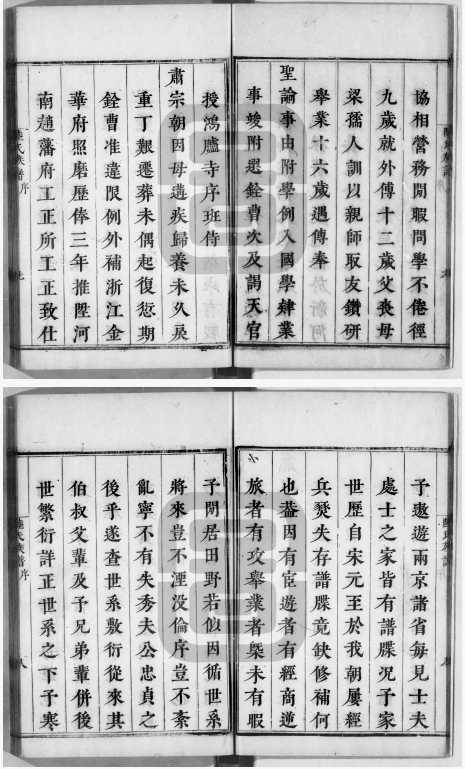 協相營務閒暇問學不倦徑
九歲就外傳十二歲父喪母
梁孺人訓以親師取友鑽研
舉業十六歲遇傳奉
聖諭事由附學例入國學肄業
事竣附選銓曹次及謁天官
授鴻臚寺序班侍
肅宗朝因母遘疾歸養未久戾
重丁艱遷葬未偶起復愆期
銓曹准違限例外補浙江金
華府照磨歷俸三年推陞河
南趙藩府工正所工正致仕
陳氏族譜序
予遨遊兩京諸省每見士夫
處士之家皆有譜牒況予家
世歷自宋元至於我朝屢經
兵燹失存譜牒竟缺修補何
也葢因有宦遊者有經商逆
旅者有攻舉業者槩未有暇
予閒居田野若似因循世系
將來豈不湮没倫序豈不紊
亂寧不有失秀夫公忠貞之
後乎遂查世系敷衍從來其
伯叔父輩及予兄弟輩併後
世繁衍詳正世系之下予寒
陳氏族譜序
八